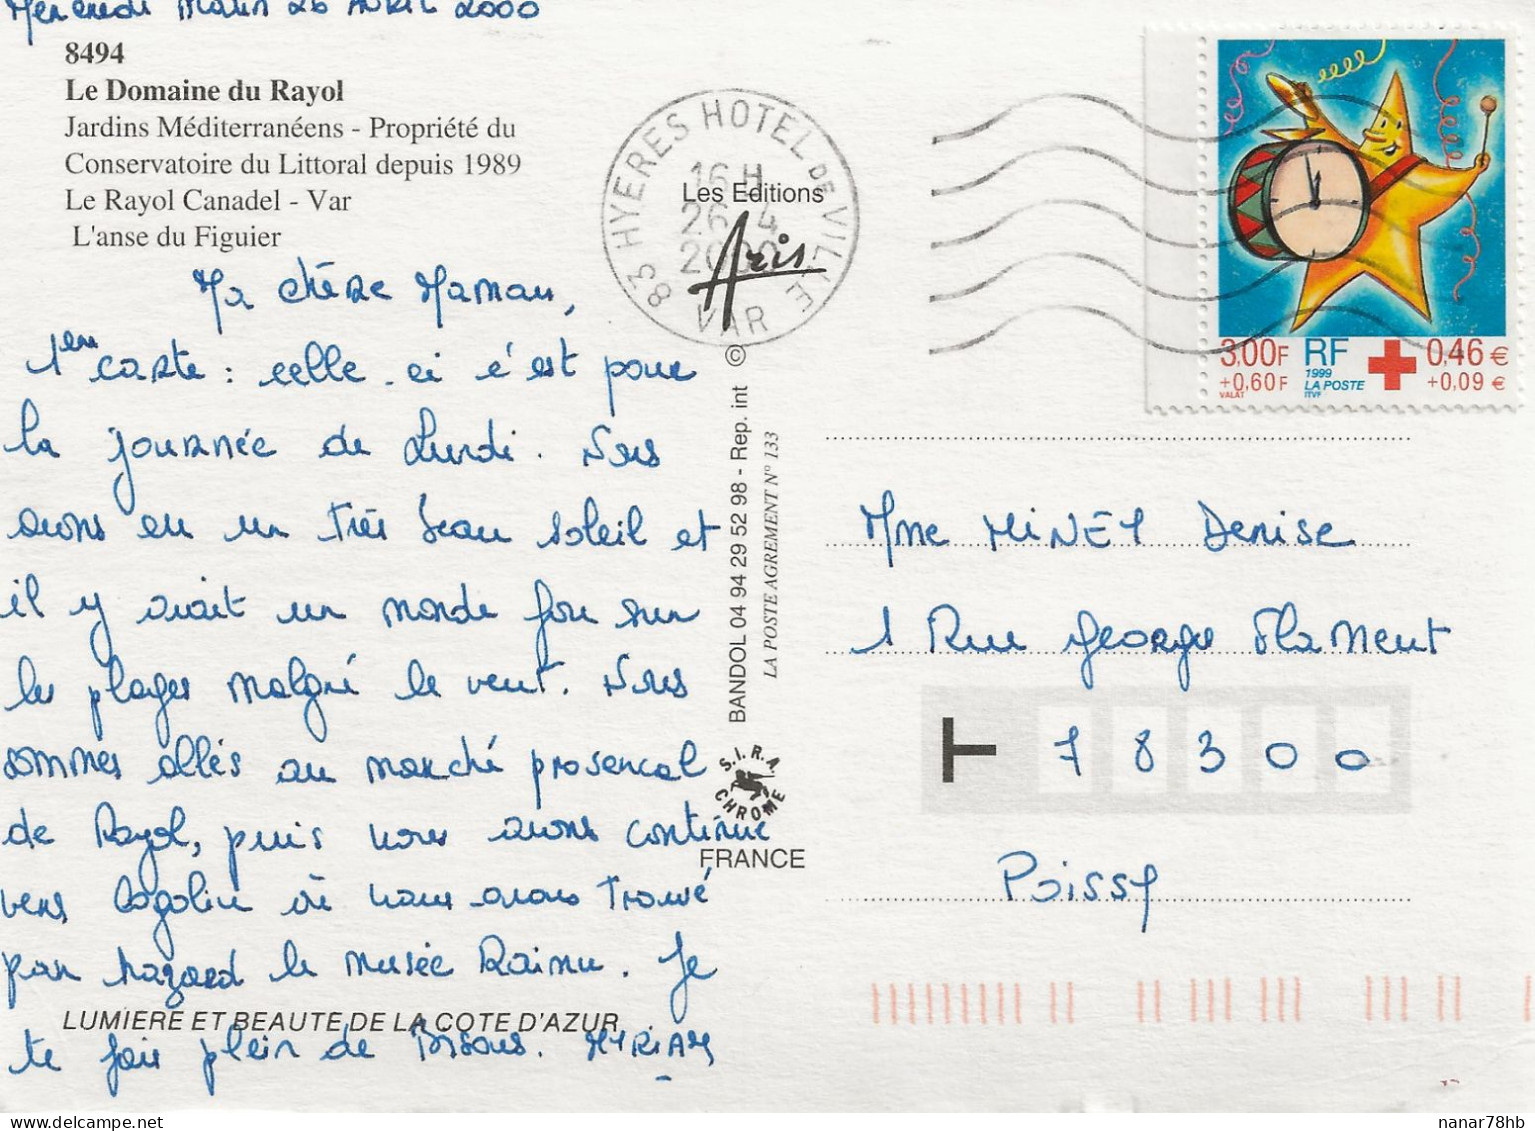 Mercredi Matin 26 Avril 2000
8494
Le Domaine du Rayol
Jardins Méditerranéens - Propriété du
Conservatoire du Littoral depuis 1989
Le Rayol Canadel - Var
L'anse du Figuier
Ma chère Maman,
1ère carte : celle-ci c'est pour
la journée de Lundi. Nous
avons eu un très beau soleil et
il y avait un monde fou sur
les plages malgré le vent. Nous
sommes allés au marché provencal
de Rayol, puis nous avons continué
vers Cogolin où nous avons trouvé
par hazard le musée Raimu. Je
te fais plein de Bisous. MYRIAM
LUMIERE ET BEAUTE DE LA COTE D'AZUR
83 HYERES HOTEL DE VILLE
16 H
26 - 4
2000
VAR
Les Editions
Aris
BANDOL 04 94 29 52 98 - Rep. int ©
LA POSTE AGREMENT N° 133
S.I.R.A.
CHROME
FRANCE
3,00F RF 0,46 €
+0,60F 1999 LA POSTE +0,09 €
VALAT ITVF
Mme MINEY Denise
1 Rue Georges Flament
T 78300
Poissy
nanar78hb